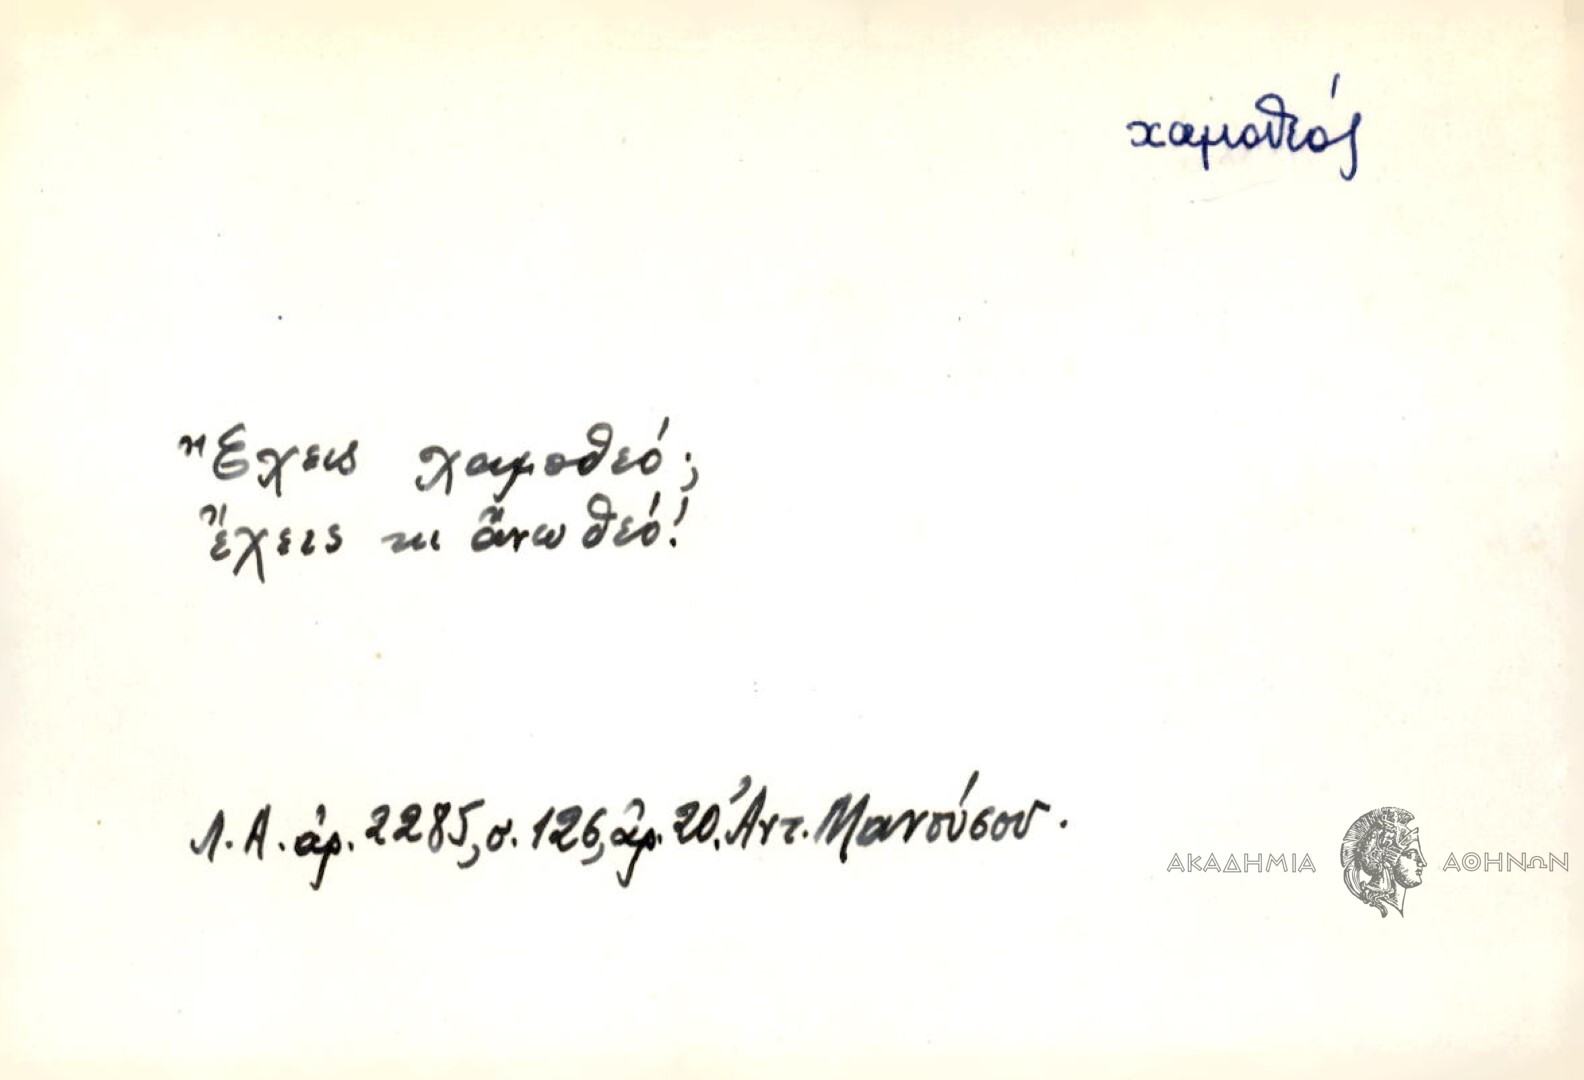 χαμοθεός
Ἔχεις χαμοθεό;
ἔχεις κι ἄνω θεό!
Λ.Α. ἀρ. 2285, σ. 126, ἀρ. 20, Ἀντ. Μανούσου.
ΑΚΑΔΗΜΙΑ ΑΘΗΝΩΝ